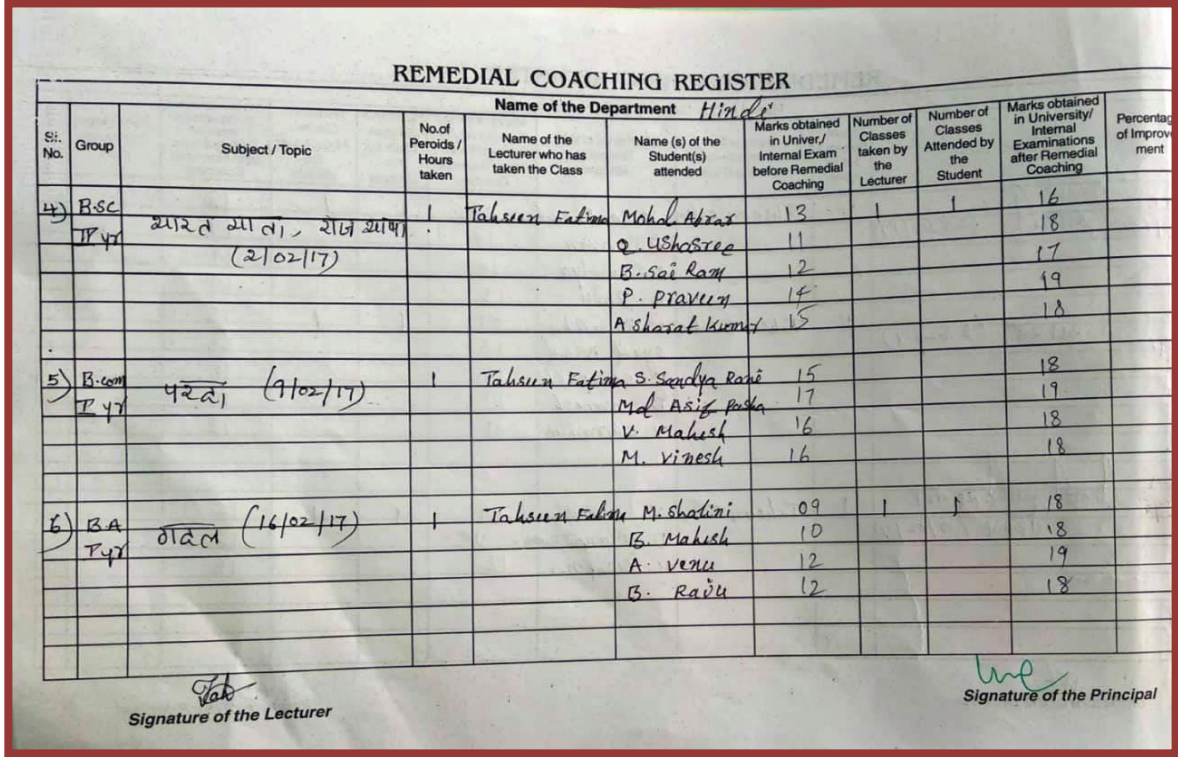 REMEDIAL COACHING REGISTER
Name of the Department Hindi
Sl. No. Group Subject / Topic No.of Peroids / Hours taken Name of the Lecturer who has taken the Class Name (s) of the Student(s) attended Marks obtained in Univer./ Internal Exam before Remedial Coaching Number of Classes taken by the Lecturer Number of Classes Attended by the Student Marks obtained in University/ Internal Examinations after Remedial Coaching Percentag of Improve ment
4) B.SC भारत माता, 1 Tahseen Fatima Mohd. Abrar 13 1 1 16
II yr Q. Ushasree 11 18
(2/02/17) B. Sai Ram 12 17
P. Praveen 14 19
A Sharat Kumar 15 18
5) B.com (9/02/17) 1 Tahseen Fatima S. Sandya Rani 15 18
I yr Md Asif Pasha 17 19
V. Mahesh 16 18
M. Vinesh 16 18
6) BA (16/02/17) 1 Tahseen Fatima M. Shalini 09 1 1 18
I yr B. Mahesh 10 18
A. Venu 12 19
B. Raju 12 18
Signature of the Lecturer
Signature of the Principal